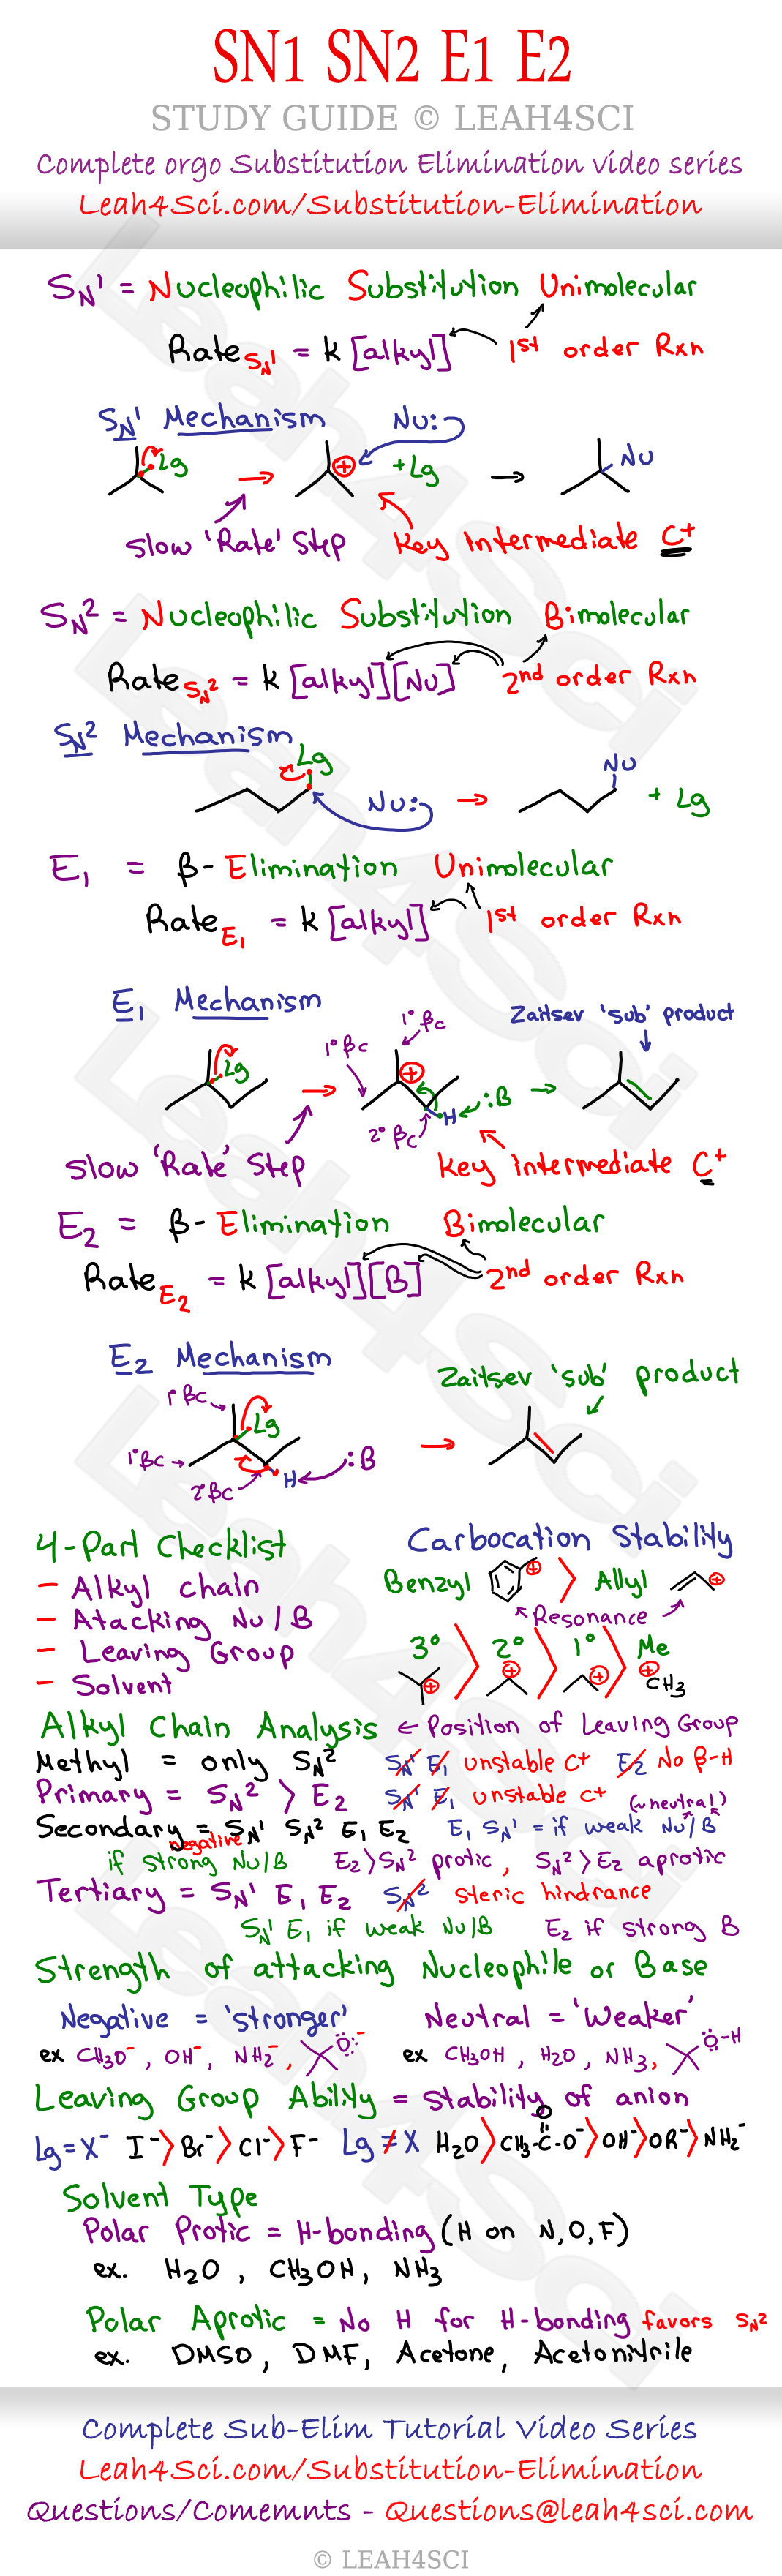 SN1 SN2 E1 E2
STUDY GUIDE © LEAH4SCI
Complete orgo Substitution Elimination video series
Leah4Sci.com/Substitution-Elimination
SN1 = Nucleophilic Substitution Unimolecular
Rate SN1 = k [alkyl] 1st order Rxn
SN1 Mechanism Nu:
Lg → ⊕ + Lg → Nu
Slow 'Rate' Step Key Intermediate C+
SN2 = Nucleophilic Substitution Bimolecular
Rate SN2 = k [alkyl][Nu] 2nd order Rxn
SN2 Mechanism
Lg Nu: → Nu + Lg
E1 = β-Elimination Unimolecular
Rate E1 = k [alkyl] 1st order Rxn
E1 Mechanism 1° βC Zaitsev 'sub' product
Lg → 1° βC ⊕ H :B →
2° βC
Slow 'Rate' Step Key Intermediate C+
E2 = β-Elimination Bimolecular
Rate E2 = k [alkyl][B] 2nd order Rxn
E2 Mechanism Zaitsev 'sub' product
1° βC Lg →
1° βC :B
2° βC H
4-Part Checklist
- Alkyl chain
- Atacking Nu/B
- Leaving Group
- Solvent
Carbocation Stability
Benzyl ⊕ > Allyl ⊕
Resonance
3° > 2° > 1° > Me
⊕ ⊕ ⊕ ⊕ CH3
Alkyl Chain Analysis ← Position of Leaving Group
Methyl = only SN2 SN1 E1 unstable C+ E2 No β-H
Primary = SN2 > E2 SN1 E1 unstable C+ (~neutral)
Secondary = SN1 SN2 E1 E2 E1 SN1 = if weak Nu/B
negative
if strong Nu/B E2 > SN2 protic, SN2 > E2 aprotic
Tertiary = SN1 E1 E2 SN2 steric hindrance
SN1 E1 if weak Nu/B E2 if strong B
Strength of attacking Nucleophile or Base
Negative = 'stronger' Neutral = 'Weaker'
ex CH3O-, OH-, NH2-, O:- ex CH3OH, H2O, NH3, O-H
Leaving Group Ability = Stability of anion
Lg = X- I- > Br- > Cl- > F- Lg ≠ X H2O > CH3-C-O- > OH- > OR- > NH2-
O
Solvent Type
Polar Protic = H-bonding (H on N,O,F)
ex. H2O, CH3OH, NH3
Polar Aprotic = No H for H-bonding favors SN2
ex. DMSO, DMF, Acetone, Acetonitrile
Complete Sub-Elim Tutorial Video Series
Leah4Sci.com/Substitution-Elimination
Questions/Comemnts - Questions@leah4sci.com
© LEAH4SCI
Leah4Sci
Leah4Sci
Leah4Sci
Leah4Sci
Leah4Sci